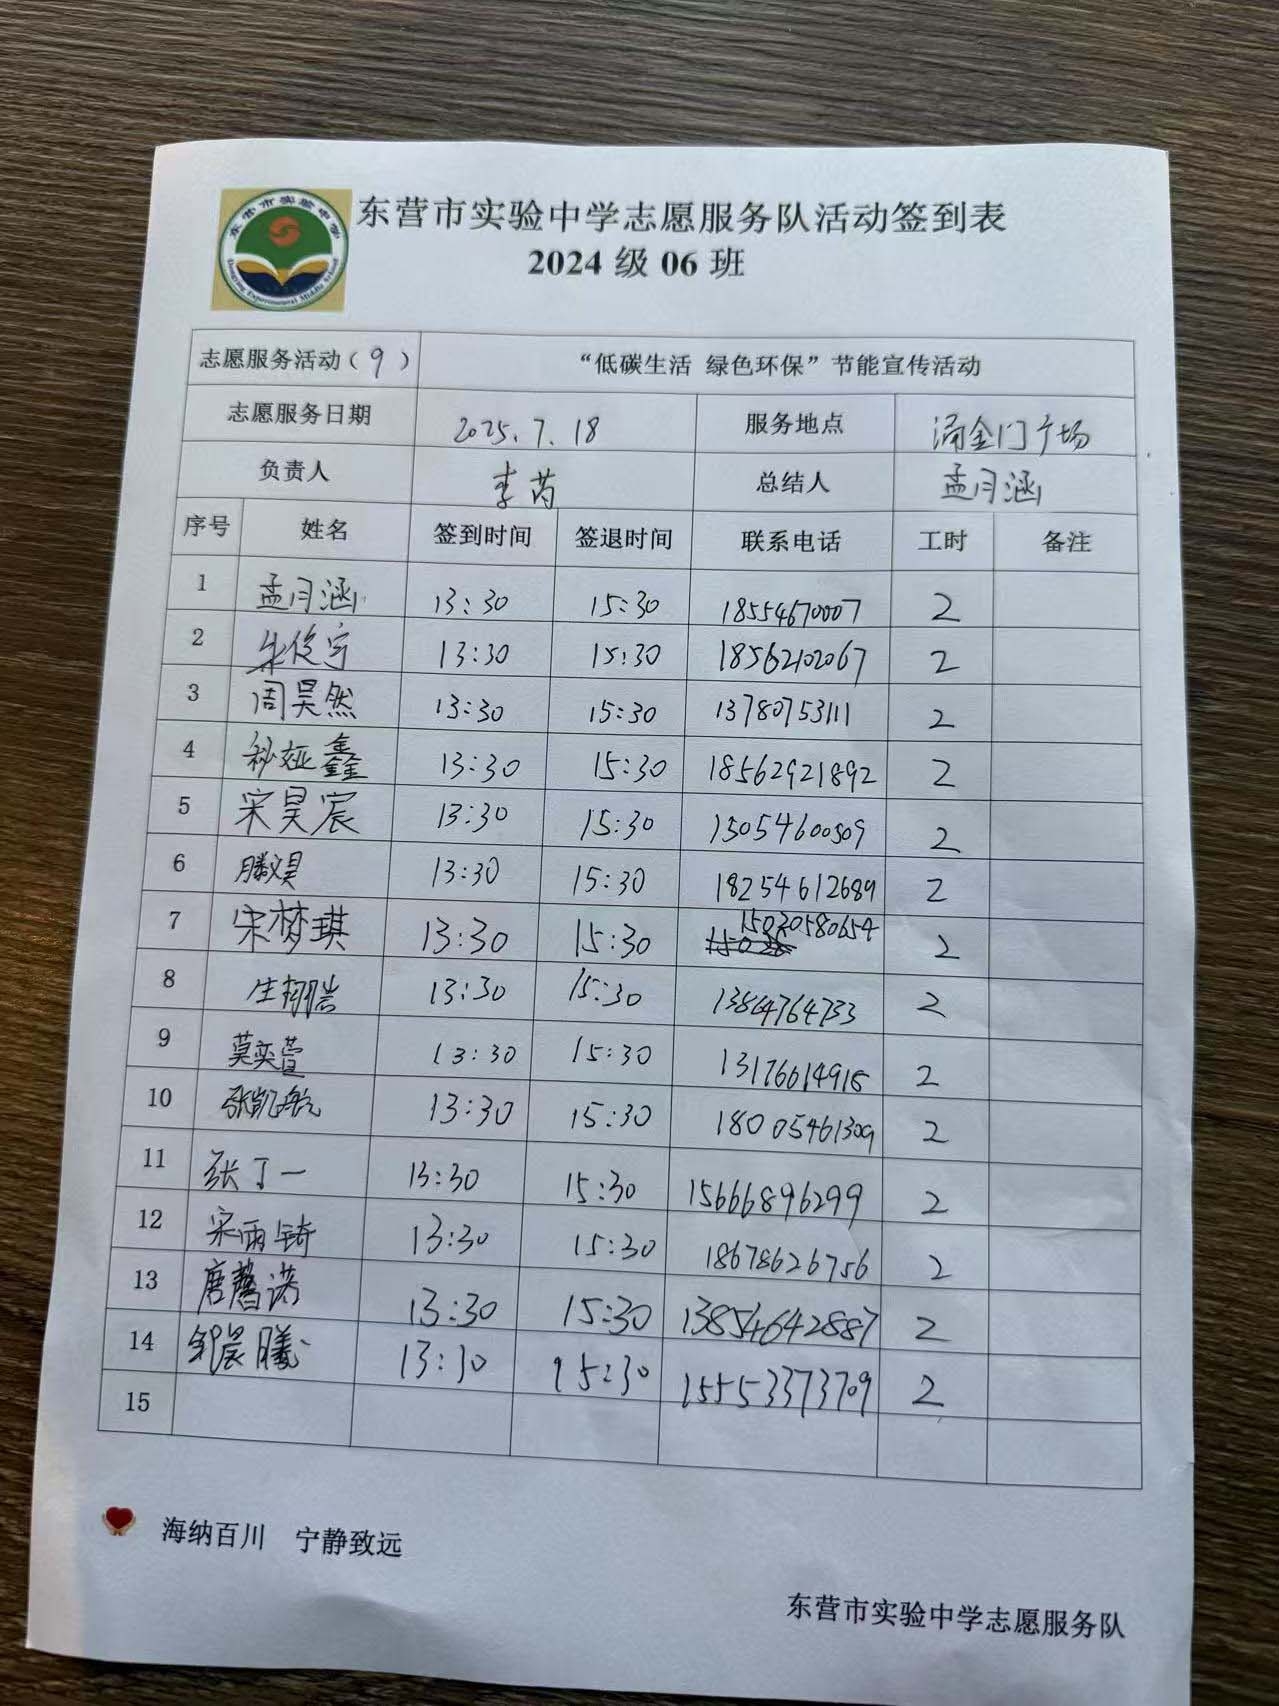 东营市实验中学
Dongying Experimental Middle School
东营市实验中学志愿服务队活动签到表
2024 级 06 班
志愿服务活动（9） “低碳生活 绿色环保”节能宣传活动
志愿服务日期 2025.7.18 服务地点 涌金门广场
负责人 李芮 总结人 孟月涵
序号 姓名 签到时间 签退时间 联系电话 工时 备注
1 孟月涵 13:30 15:30 18554670007 2
2 朱俊宇 13:30 15:30 18562102067 2
3 周昊然 13:30 15:30 13780753111 2
4 秘娅鑫 13:30 15:30 18562921892 2
5 宋昊宸 13:30 15:30 15054600509 2
6 滕昊 13:30 15:30 18254612689 2
7 宋梦琪 13:30 15:30 15020580654 2
8 生翔 13:30 15:30 13864764733 2
9 莫奕萱 13:30 15:30 13176614918 2
10 张凯航 13:30 15:30 18005461309 2
11 张丁一 13:30 15:30 15666896299 2
12 宋雨锜 13:30 15:30 18678626756 2
13 唐馨诺 13:30 15:30 13854642887 2
14 邹晨曦 13:30 15:30 15553373709 2
15
海纳百川 宁静致远
东营市实验中学志愿服务队